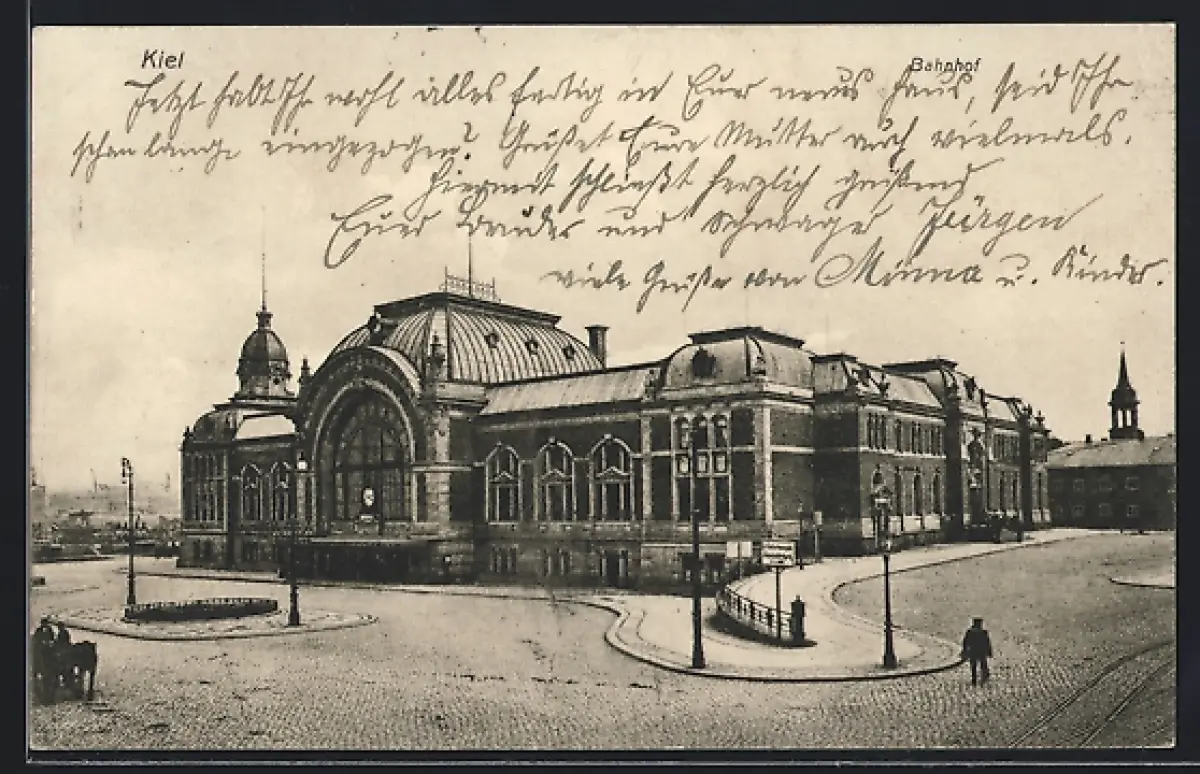 Kiel
Bahnhof
Jetzt habt Ihr wohl alles fertig in Euer neues Haus, seid Ihr
schon lange eingezogen? Grüßet Eure Mutter auch vielmals.
Hiermit schließt herzlich grüßend
Euer Bruder und Schwager Jürgen
viele Grüße von Minna u. Kinder.